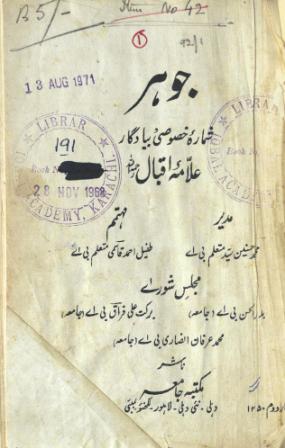 B5/-
Item No 42
1
92/1
13 AUG 1971
جوہر
شمارۂ خصوصی بیادگار
علامۂ اقبال
LIBRARY
191
Book No.
28 NOV 1968
IQBAL ACADEMY, KARACHI
مدیر
مہتمم
محمد حسنین سید متعلم بی اے
طفیل احمد قاسمی متعلم بی اے
مجلس شورے
بدر الحسن بی اے (جامعہ)
برکت علی فراق بی اے (جامعہ)
محمد عرفان انصاری بی اے (جامعہ)
ناشر
مکتبہ جامعہ
دہلی۔ نئی دہلی۔ لاہور۔ لکھنؤ۔ بمبئی
دوم ۱۲۵۰